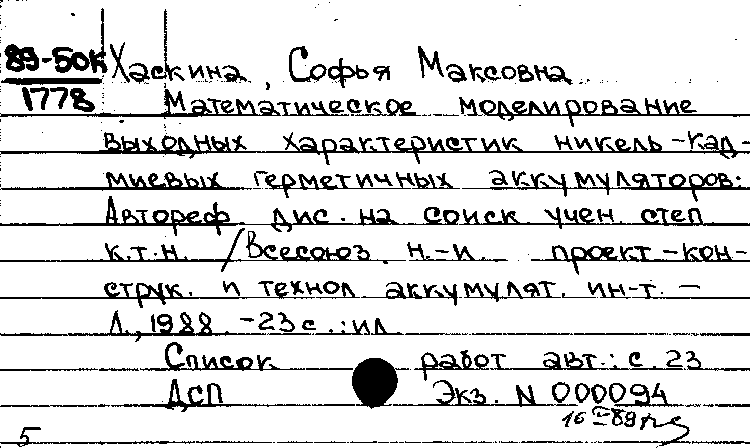 89-50к Хаскина, Софья Максовна
1778 Математическое моделирование
выходных характеристик никель-кад-
миевых герметичных аккумуляторов:
Автореф. дис. на соиск. учен. степ.
к.т.н. /Всесоюз. н.-и. проект-кон-
струк. и технол. аккумулят. ин-т. -
Л., 1988. -23с.:ил.
Список работ авт.: с. 23
ДСП Экз. N 000094
5